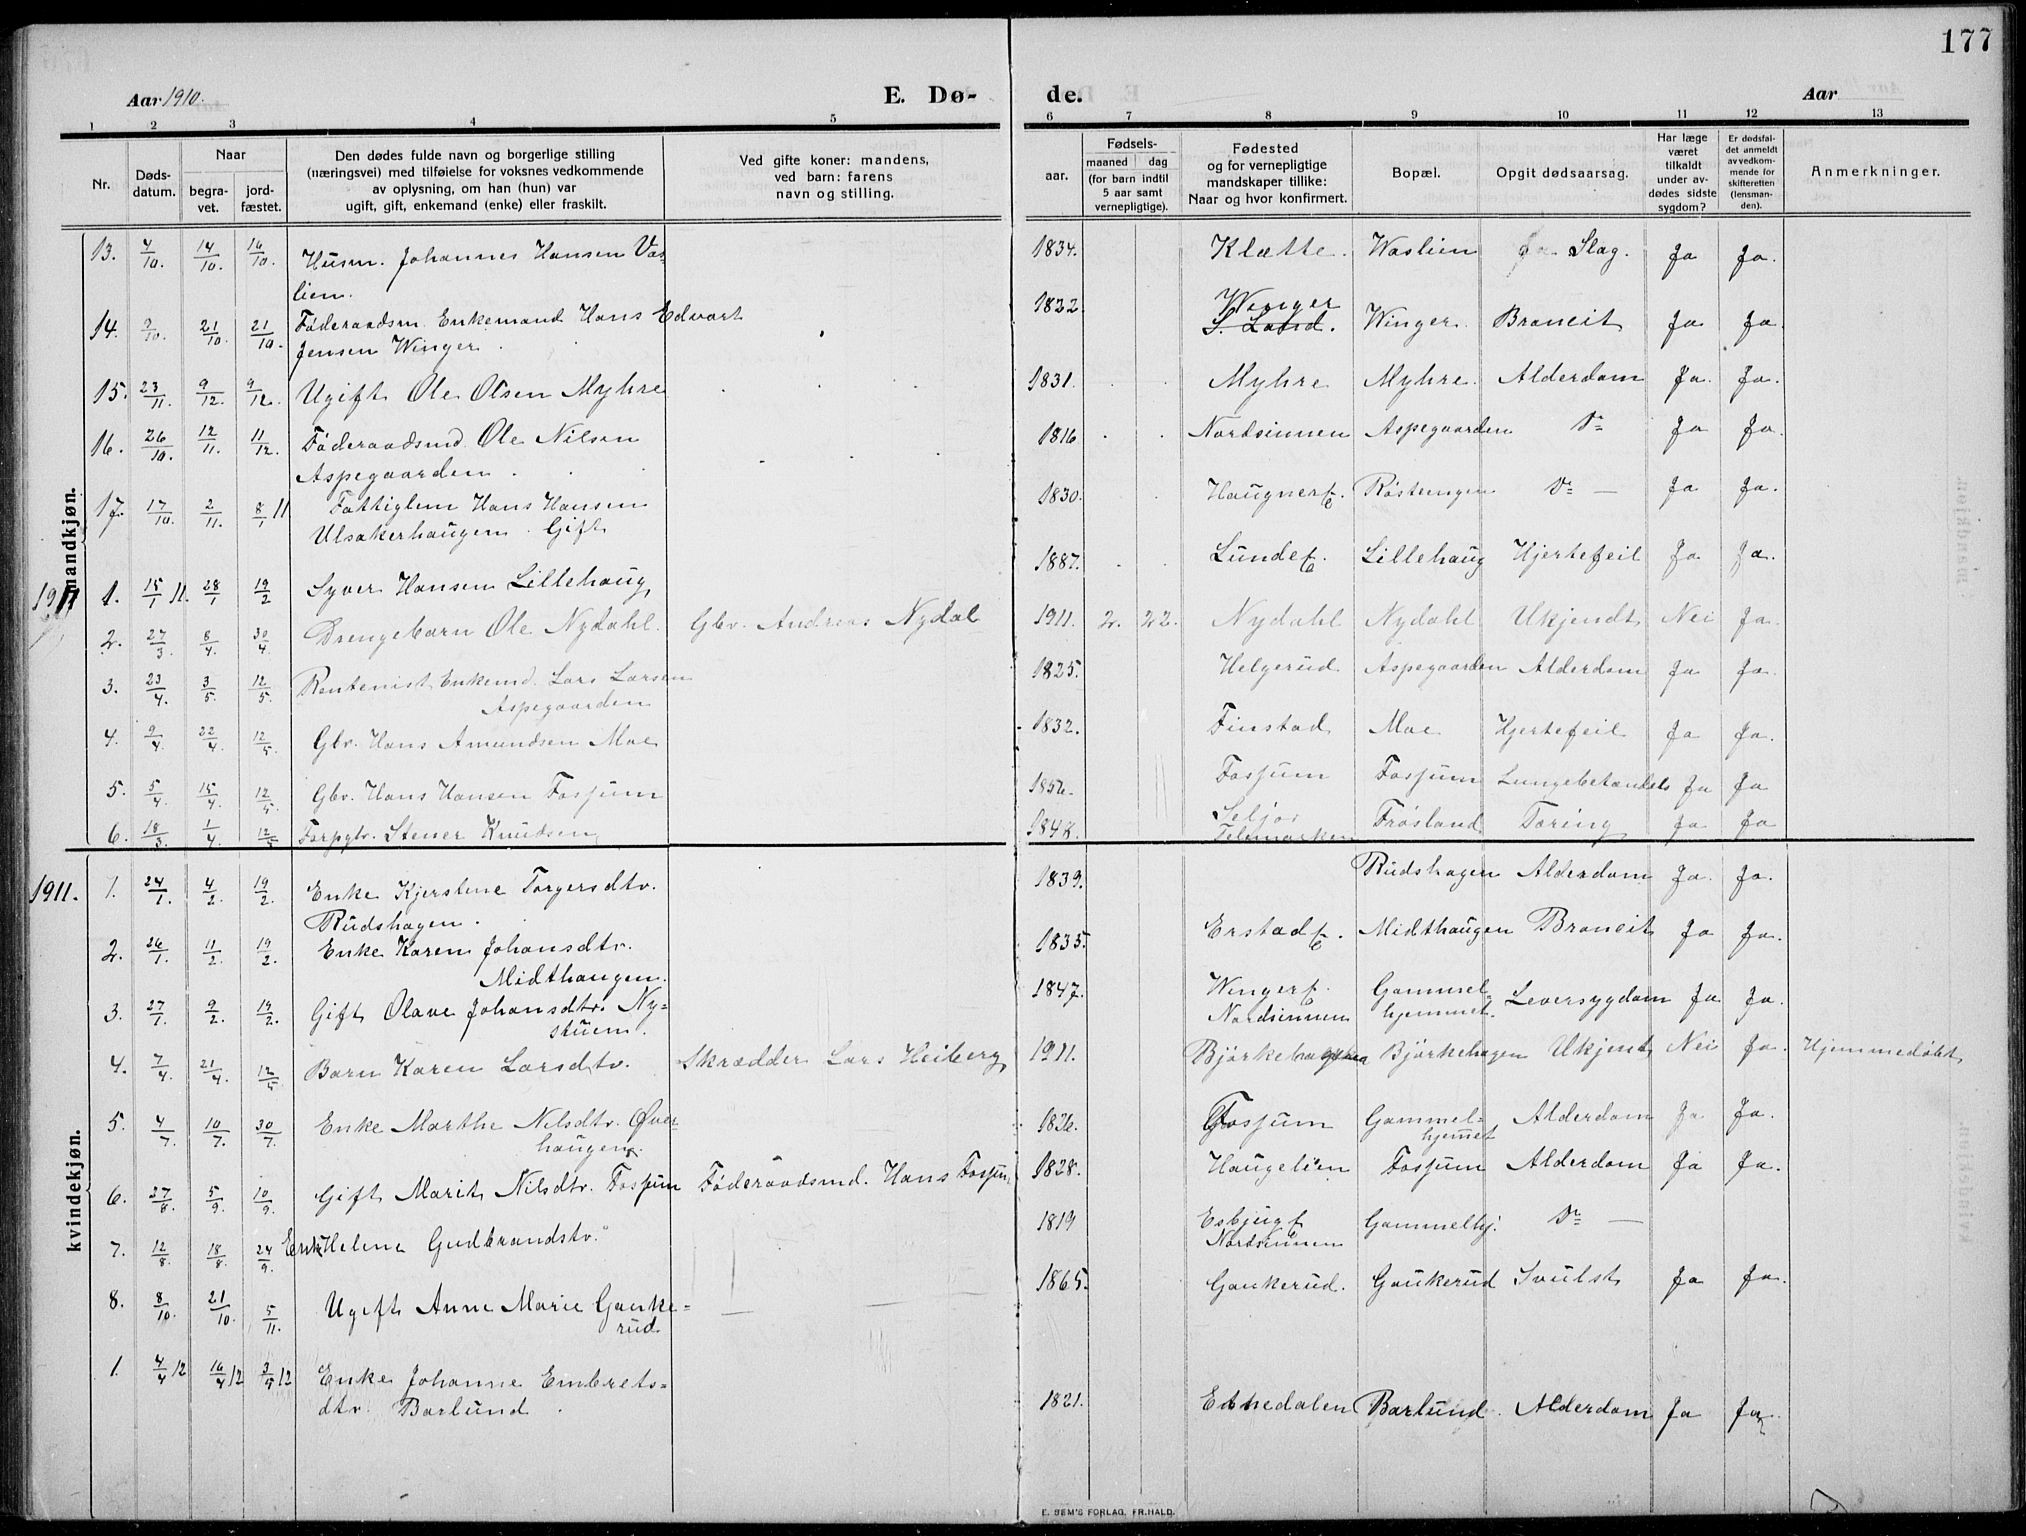 177
Aar 1910.
E. Dø-
de.
Aar
1 2 3 4 5 6 7 8 9 10 11 12 13
Nr.
Døds-
datum.
Naar
begra-
vet.
jord-
fæstet.
Den dødes fulde navn og borgerlige stilling
(næringsvei) med tilføielse for voksnes vedkommende
av oplysning, om han (hun) var
ugift, gift, enkemand (enke) eller fraskilt.
Ved gifte koner: mandens,
ved barn: farens
navn og stilling.
Fødsels-
aar.
maaned dag
(for barn indtil
5 aar samt
vernepligtige).
Fødested
og for vernepligtige
mandskaper tillike:
Naar og hvor konfirmert.
Bopæl.
Opgit dødsaarsag.
Har læge
været
tilkaldt
under av-
dødes sidste
sygdom?
Er dødsfal-
det anmeldt
av vedkom-
mende for
skifteretten
(lensman-
den).
Anmerkninger.
mandkjøn.
13. 4/10. 14/10. 16/10. Husm. Johannes Hansen Vas- 1834. Klætte. Waslien Slag. Ja Ja.
lien.
14. 9/10. 21/10. 21/10. Føderaadsm. Enkemand Hans Edvart 1832. Winger Winger. Brancit Ja Ja.
Jensen Winger. S. Land.
15. 23/11. 9/12. 9/12. Ugift Ole Olsen Myhre 1831. Myhre Myhre. Alderdom Ja. Ja.
16. 26/10. 12/11. 11/12. Føderaadsmd. Ole Nilsen 1816. Nordsinnen Aspegaarden Do Ja Ja.
Aspegaarden.
17. 17/10. 2/11. 8/1 11 Fattiglem Hans Hansen 1830. Haugnere. Røstengen Do — Ja Ja.
Ulsakerhaugen. Gift
1911 1. 15/1 11. 28/1 19/2 Syver Hansen Lillehaug 1887. Lunde. Lillehaug Hjertefeil Ja Ja.
2. 27/3 8/4. 30/4 Drengebarn Ole Nydahl. Gbr. Andreas Nydal 1911. 2. 22. Nydahl Nydahl Ukjendt Nei Ja.
3. 23/4. 3/5 12/5. Rentenist Enkemd. Lars Larsen 1825. Helgerud Aspegaarden Alderdom Ja Ja.
Aspegaarden
4. 9/4. 22/4. 12/5. Gbr. Hans Amundsen Moe 1832. Finstad Moe Hjertefeil Ja Ja.
5. 5/4. 15/4. 12/5. Gbr. Hans Hansen Fossum 1856. Fossum Fossum Lungebetændels Ja Ja
6. 18/3. 1/4. 12/5 Forpgtr. Stener Knudsen 1848. Seljor Frøsland Tæring Ja Ja
Telemarken
kvindekjøn.
1911. 1. 24/1. 4/2. 19/2. Enke Kjerstene Torgersdtr. 1839. Rudshagen Alderdom Ja. Ja.
Rudshagen.
2. 26/1. 11/2. 19/2. Enke Karen Johansdtr. 1835. Erstade. Midthaugen Brancit Ja Ja.
Midthaugen.
3. 27/1. 9/2. 19/2. Gift Olave Johansdtr. Ny- 1847. Winger. Gammel- Leversygdom Ja Ja.
stuen. Nordsinnen hjemmet.
4. 7/4. 21/4. 12/5 Barn Karen Larsdtr. Skrædder Lars Heiberg 1911. Bjørkehagen Bjørkehagen Ukjent Nei Ja. Hjemmedøbt
5. 4/7. 10/7. 30/7. Enke Marthe Nilsdtr. Øver- 1826. Fossum Gammel- Alderdom Ja Ja.
haugen. hjemmet
6. 27/8. 5/9. 10/9. Gift Marit Nilsdtr. Fossum Føderaadsmd. Hans Fossum 1828. Haugelien Fossum Alderdom Ja Ja.
7. 12/8. 18/8. 24/9. Enke Helene Gudbrandstr. 1819 Esbjug Gammelhj. Do —
Nordsinnen
8. 8/10. 21/10. 5/11. Ugift Anne Marie Gauke- 1865. Gaukerud. Gaukerud Svulst Ja Ja.
rud.
1. 4/4 12 16/4 12 3/5 12 Enke Johanne Embrets- 1821. Etnedalen Barlund. Alderdom Ja Ja.
dtr. Barlund.
E. SEM'S FORLAG, FR.HALD.